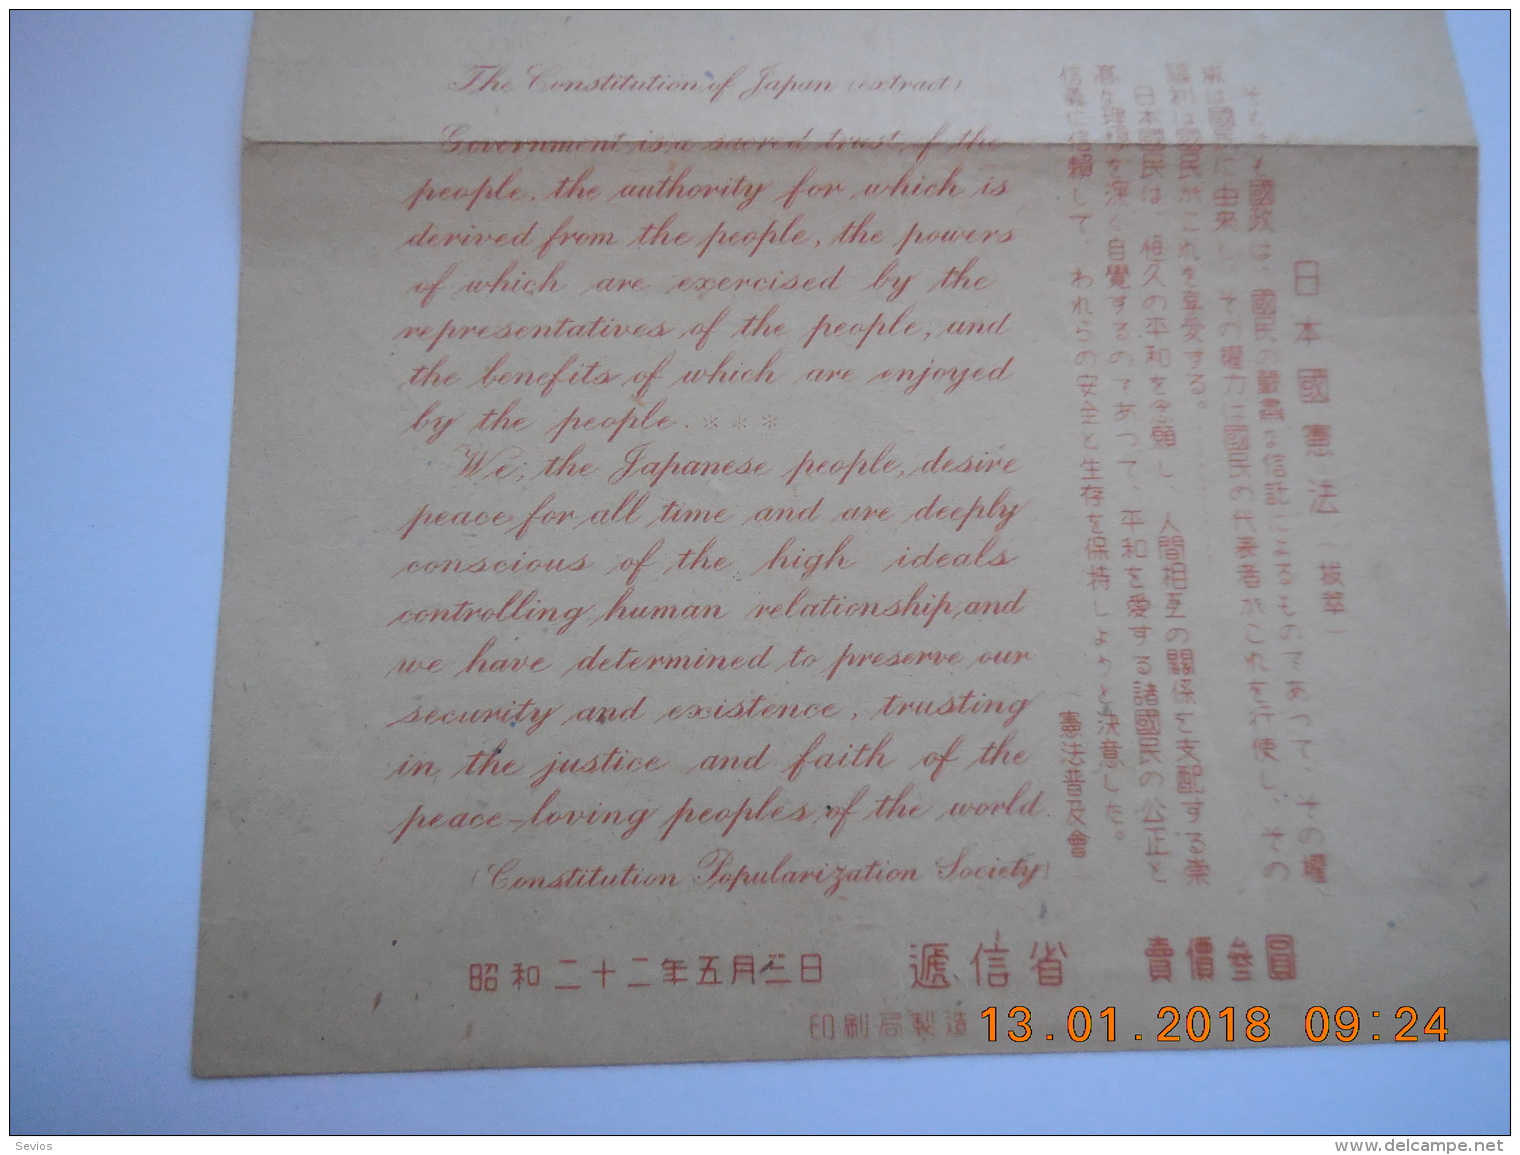 The Constitution of Japan (extract)
Government is a sacred trust of the
people, the authority for which is
derived from the people, the powers
of which are exercised by the
representatives of the people, and
the benefits of which are enjoyed
by the people. ***
We, the Japanese people, desire
peace for all time and are deeply
conscious of the high ideals
controlling human relationship, and
we have determined to preserve our
security and existence, trusting
in the justice and faith of the
peace-loving peoples of the world.
(Constitution Popularization Society)
日本國憲法(抜萃)
そもそも國政は、國民の嚴肅な信託によるものであつて、その權
威は國民に由來し、その權力は國民の代表者がこれを行使し、その
福利は國民がこれを享受する。
日本國民は、恒久の平和を念願し、人間相互の關係を支配する崇
高な理想を深く自覺するのであつて、平和を愛する諸國民の公正と
信義に信頼して、われらの安全と生存を保持しようと決意した。
(憲法普及會
昭和二十二年五月三日 遞信省 賣價參圓
印刷局製造
13.01.2018 09:24
Sevios
www.delcampe.net